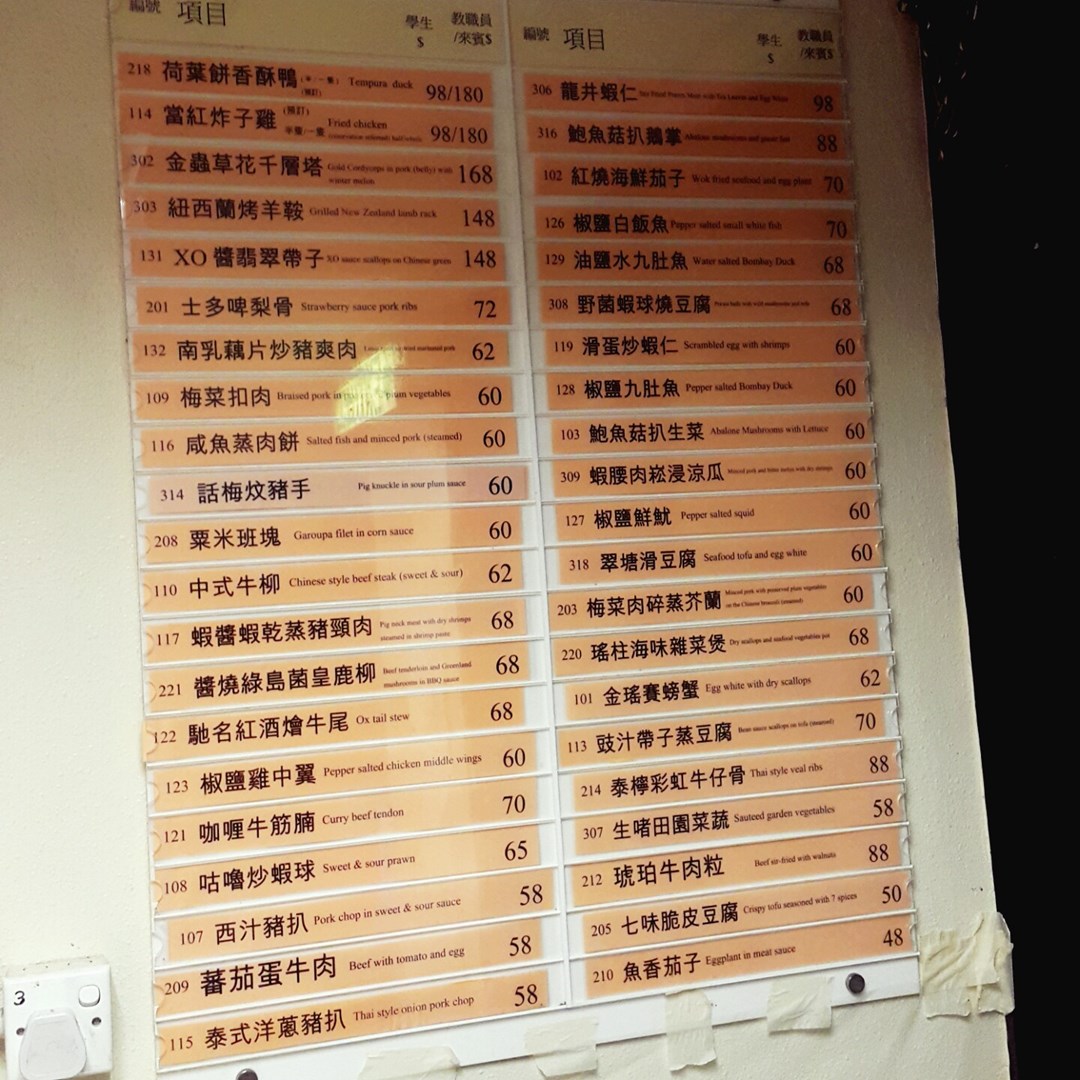 編號 項目 學生 $ 教職員 /來賓$
218 荷葉餅香酥鴨 (半/一隻) (預訂) Tempura duck 98/180
114 當紅炸子雞 (預訂) 半隻/一隻 Fried chicken 98/180
302 金蟲草花千層塔 Gold Cordyceps in pork (belly) with winter melon 168
303 紐西蘭烤羊鞍 Grilled New Zealand lamb rack 148
131 XO 醬翡翠帶子 XO sauce scallops on Chinese green 148
201 士多啤梨骨 Strawberry sauce pork ribs 72
132 南乳藕片炒豬爽肉 62
109 梅菜扣肉 Braised pork in plum vegetables 60
116 咸魚蒸肉餅 Salted fish and minced pork (steamed) 60
314 話梅炆豬手 Pig knuckle in sour plum sauce 60
208 粟米班塊 Garoupa filet in corn sauce 60
110 中式牛柳 Chinese style beef steak (sweet & sour) 62
117 蝦醬蝦乾蒸豬頸肉 Pig neck meat with dry shrimps steamed in shrimp paste 68
221 醬燒綠島菌皇鹿柳 Beef tenderloin and Greenland mushrooms in BBQ sauce 68
122 馳名紅酒燴牛尾 Ox tail stew 68
123 椒鹽雞中翼 Pepper salted chicken middle wings 60
121 咖喱牛筋腩 Curry beef tendon 70
108 咕嚕炒蝦球 Sweet & sour prawn 65
107 西汁豬扒 Pork chop in sweet & sour sauce 58
209 蕃茄蛋牛肉 Beef with tomato and egg 58
115 泰式洋蔥豬扒 Thai style onion pork chop 58
編號 項目 學生 $ 教職員 /來賓$
306 龍井蝦仁 98
316 鮑魚菇扒鵝掌 Abalone mushrooms and goose feet 88
102 紅燒海鮮茄子 Wok fried seafood and egg plant 70
126 椒鹽白飯魚 Pepper salted small white fish 70
129 油鹽水九肚魚 Water salted Bombay Duck 68
308 野菌蝦球燒豆腐 68
119 滑蛋炒蝦仁 Scrambled egg with shrimps 60
128 椒鹽九肚魚 Pepper salted Bombay Duck 60
103 鮑魚菇扒生菜 Abalone Mushrooms with Lettuce 60
309 蝦腰肉崧浸涼瓜 Minced pork and bitter melon with dry shrimps 60
127 椒鹽鮮魷 Pepper salted squid 60
318 翠塘滑豆腐 Seafood tofu and egg white 60
203 梅菜肉碎蒸芥蘭 Minced pork with preserved plum vegetables on the Chinese broccoli (steamed) 60
220 瑤柱海味雜菜煲 Dry scallops and seafood vegetables pot 68
101 金瑤賽螃蟹 Egg white with dry scallops 62
113 豉汁帶子蒸豆腐 Bean sauce scallops on tofu (steamed) 70
214 泰檸彩虹牛仔骨 Thai style veal ribs 88
307 生啫田園菜蔬 Sauteed garden vegetables 58
212 琥珀牛肉粒 Beef sir-fried with walnuts 88
205 七味脆皮豆腐 Crispy tofu seasoned with 7 spices 50
210 魚香茄子 Eggplant in meat sauce 48
3